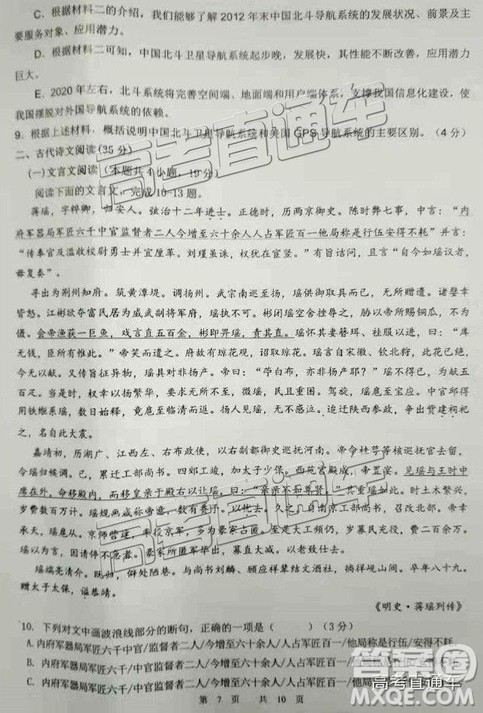 C. 根据材料二的介绍，我们能够了解 2012 年末中国北斗导航系统的发展状况、前景及主
要服务对象、应用潜力。
D. 根据材料二可知，中国北斗卫星导航系统起步晚，发展快，其性能不断改善，应用潜
力巨大。
E. 2020 年左右，北斗系统将完善空间端、地面端和用户端体系，支撑我国信息化建设，使
我国摆脱对外国导航系统的依赖。
9. 根据上述材料，概括说明中国北斗卫星导航系统和美国 GPS 导航系统的主要区别。（4 分）
二、古代诗文阅读(35 分)
(一)文言文阅读（本题共 4 小题，19 分）
阅读下面的文言文，完成 10-13 题。
蒋瑶，字粹卿，归安人。弘治十二年进士。正德时，历两京御史。陈时弊七事，中言："内
府军器局军匠六千中官监督者二人今增至六十余人人占军匠百一他局称是行伍安得不耗"并言：
"传奉官及滥收校尉勇士并宜厘革。刘瑾虽诛，权犹在宦竖。"有旨诘问，且言"自今如瑶议者，
毋复奏"。
寻出为荆州知府。筑黄潭堤。调扬州。武宗南巡至扬，瑶供御取具而已，无所赠遗。诸嬖幸
皆怒。江彬欲夺富民居为威武副将军府，瑶执不可。彬闭瑶空舍挫辱之，胁以帝所赐铜瓜，不为
慑。会帝渔获一巨鱼，戏言直五百金，彬即畀瑶，责其直。瑶怀其妻簪珥、袿服以进，曰："库
无钱，臣所有惟此。"帝笑而遣之。府故有琼花观，诏取琼花。瑶言自宋徽、钦北狩，此花已绝，
今无以献。又传旨征异物，瑶具对非扬产。帝曰："苎白布，亦非扬产耶？"瑶不得已，为献五百
疋。当是时，权幸以扬繁华，要求无所不至。微瑶，民且重困。驾旋，瑶扈至宝应。中官邱得
用铁絙系瑶，数日始释，竟扈至临清而返。扬人见瑶，无不感泣。迁陕西参政，争出赀建祠祀
之，名自此大震。
嘉靖初，历湖广、江西左、右布政使，以右副都御史巡抚河南。帝命桂萼等核巡抚官去留，
令瑶归候调。已，累迁工部尚书。四郊工竣，加太子少保。西苑宫殿成，帝置宴。见瑶与王时中
席在外，命移殿内，而移皇亲于殿右以让瑶，曰："亲亲不如尊贤。"其重瑶如此。时土木繁兴，
岁费数百万计。瑶规画咸称帝意，数有赉予。以忧去。久之，自南京工部尚书，召改北部。帝幸
承天，瑶扈从。京师营建，率役京军，多为豪家占匿。至是大工频仍，岁募民充役，费二百余万。
瑶以为言，因请停不急者。豪家所匿军毕出，募直大减。以老致仕去。
瑶端亮清介。既归，僻处陋巷。与尚书刘麟、顾应祥辈结文酒社，徜徉岘山间。卒年八十九，
赠太子太保，谥恭靖。
《明史·蒋瑶列传》
10. 下列对文中画波浪线部分的断句，正确的一项是（　　）（3 分）
A. 内府军器局军匠六千/中官监督者二人/今增至六十余人/人占军匠百一/他局称是行伍/安得不耗
C. 内府军器局军匠六千/中官/监督者二人/今增至六十余人/人占军匠百一/他局称是/行伍安得不耗
第 7 页　共 10 页
高考直通车
高考直通车
高考直通车
答案圈
MXQE.COM